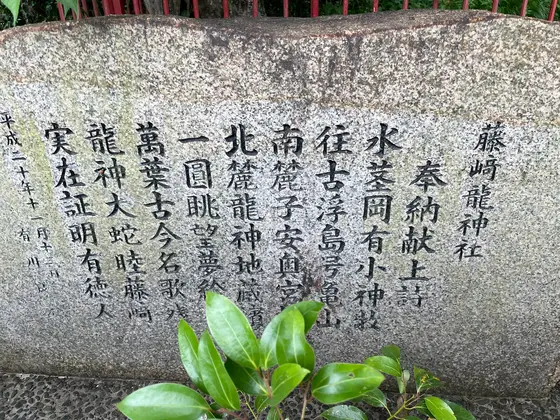 藤﨑龍神社
奉納献上詩
水茎岡有小神教
往古浮島号亀山
南麓子安奥宮
北麓龍神地蔵
一圓眺望夢絵
萬葉古今名歌残
龍神大蛇睦藤﨑
実在証明有徳人
平成二十年十一月十二日
有川